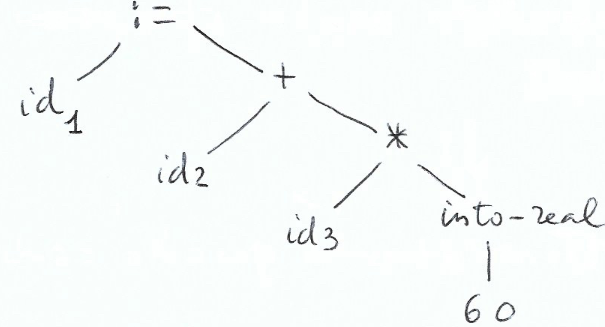 :=
id1
+
id2
*
id3
into-real
60